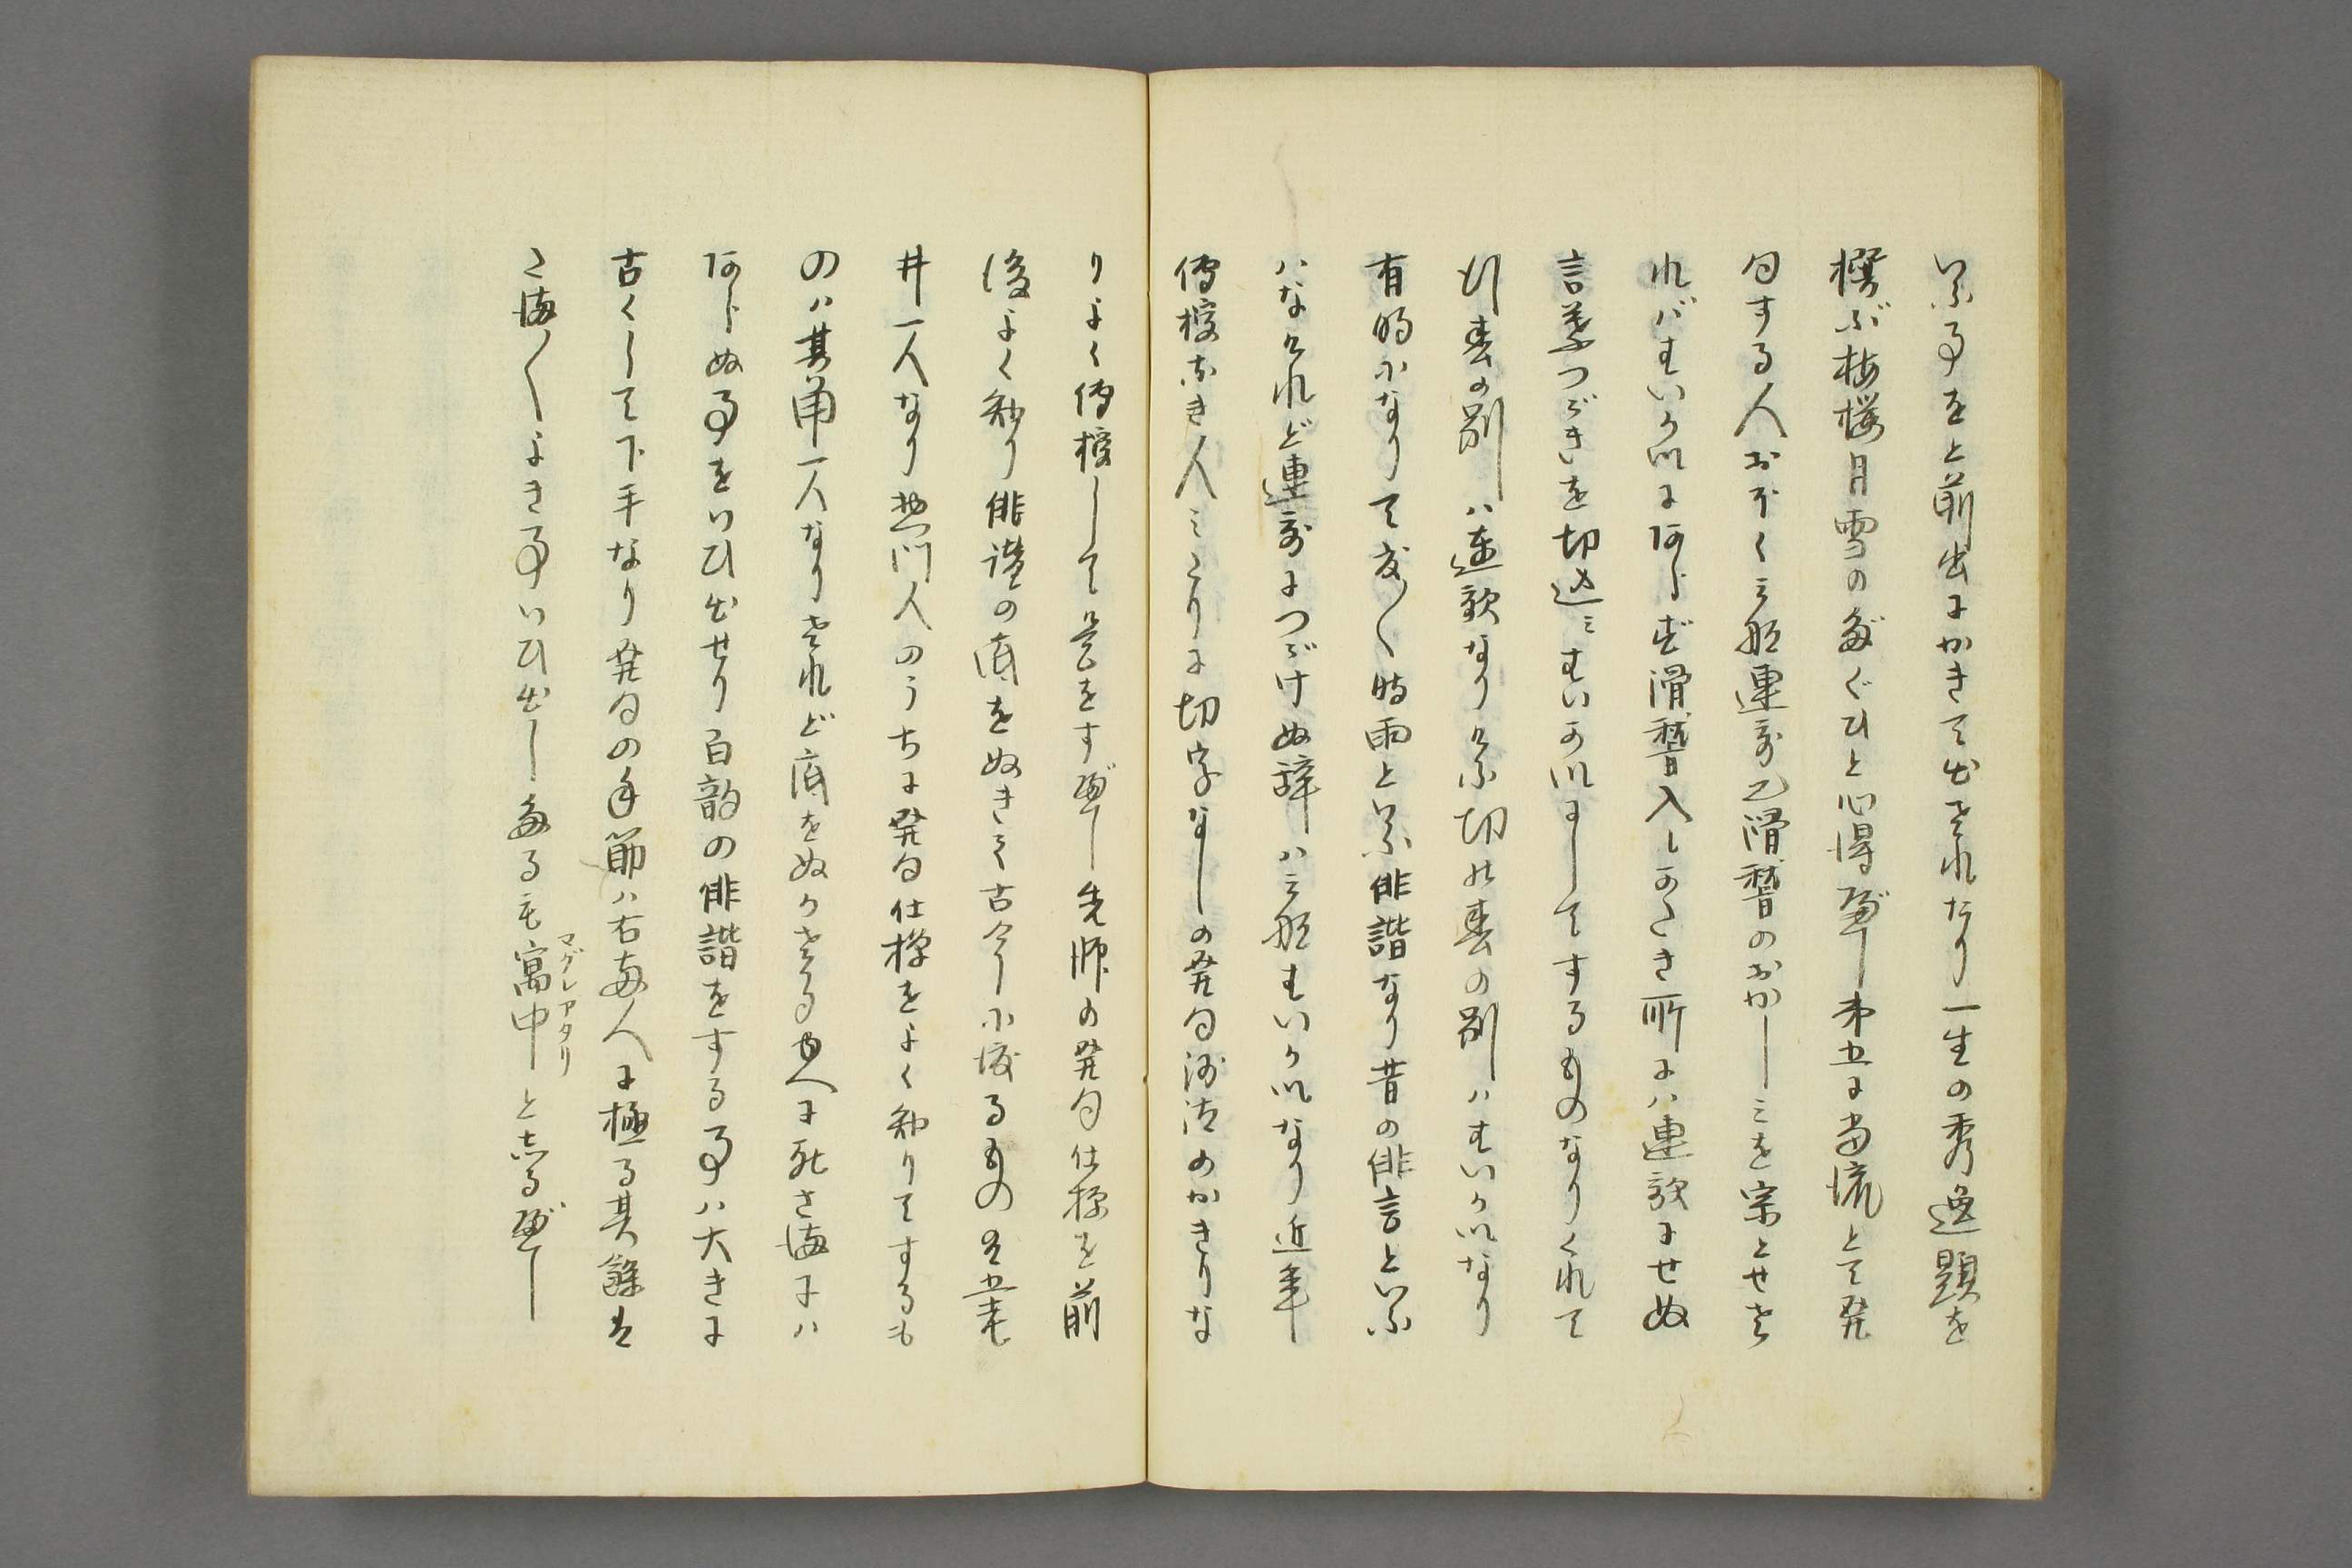 いふ事を上前出にかきて出されたり一生の秀逸題を
撰ぶ梅桜月雪のたぐひと心得べし第五に当流とて発
句する人おほく三船連哥に滑稽のおかしみを宗とせざ
ればすいかいにあらず滑稽入しかたき所には連歌にせぬ
言葉つゞきを切込みすいかいにしてするものなりくれて
行春の別は連歌なりけふ切の春の別はすいかいなり
有時になりて度〱時雨といふ俳諧なり昔の俳言といふ
はなけれど連哥につゞけぬ辞は三船すいかいなり近年
傳授なき人みたりに切字なしの発句沙汰のかきりな
りよく傳授して是をすべし先師の発句仕様を前
後よく知り俳諧の底をぬきて古今に渡るものは其
井一人なり惣門人のうちに発句仕様をよく知りてするも
のは其角一人なりされど底をぬかざるゆへに死さまには
あらぬ事をいひ出せり百韵の俳諧をする事は大きに
古くして下手なり発句の手節は右両人に極る其餘は
たま〱よき事いひ出したるも寓中と志るべし
マグレアタリ